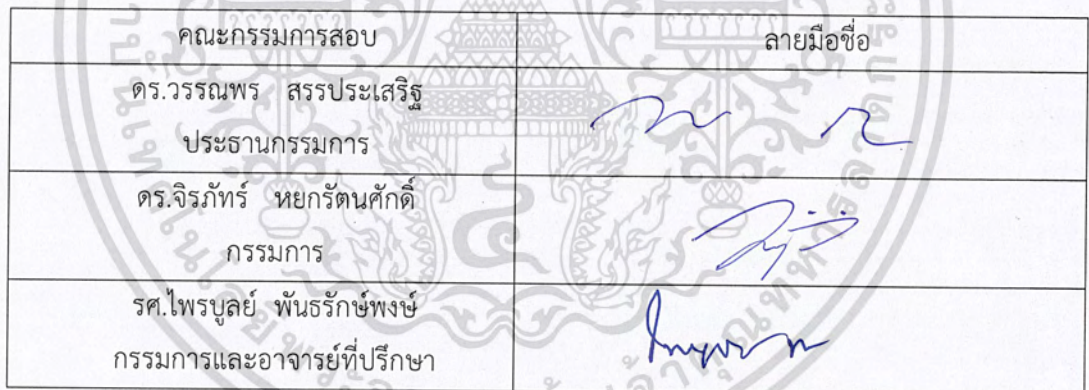 คณะกรรมการสอบ ลายมือชื่อ
ดร.วรรณพร สรรประเสริฐ
ประธานกรรมการ
ดร.จิรภัทร์ หยกรัตนศักดิ์
กรรมการ
รศ.ไพรบูลย์ พันธรักษ์พงษ์
กรรมการและอาจารย์ที่ปรึกษา